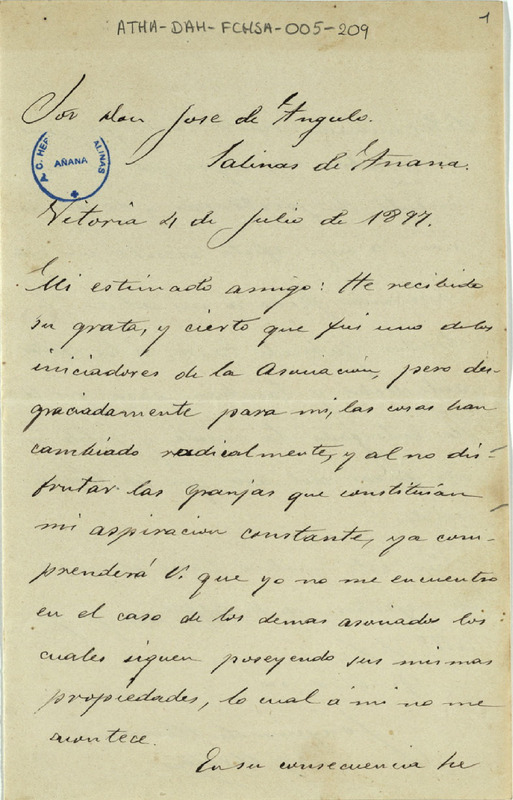 ATHA-DAH-FCHSA-005-209
1
Sor Don Jose de Angulo.
Salinas de Añana.
A. C. HER ALINAS
AÑANA
Vitoria 4 de Julio de 1897.
Mi estimado amigo: He recibido
su grata, y cierto que fui uno de los
iniciadores de la Asociación, pero des-
graciadamente para mi, las cosas han
cambiado radicalmente, y al no dis-
frutar las granjas que constituian
mi aspiracion constante, ya com-
prenderá V. que yo no me encuentro
en el caso de los demas asociados los
cuales siguen poseyendo sus mismas
propiedades, lo cual á mi no me
acontece.
En su consecuencia he